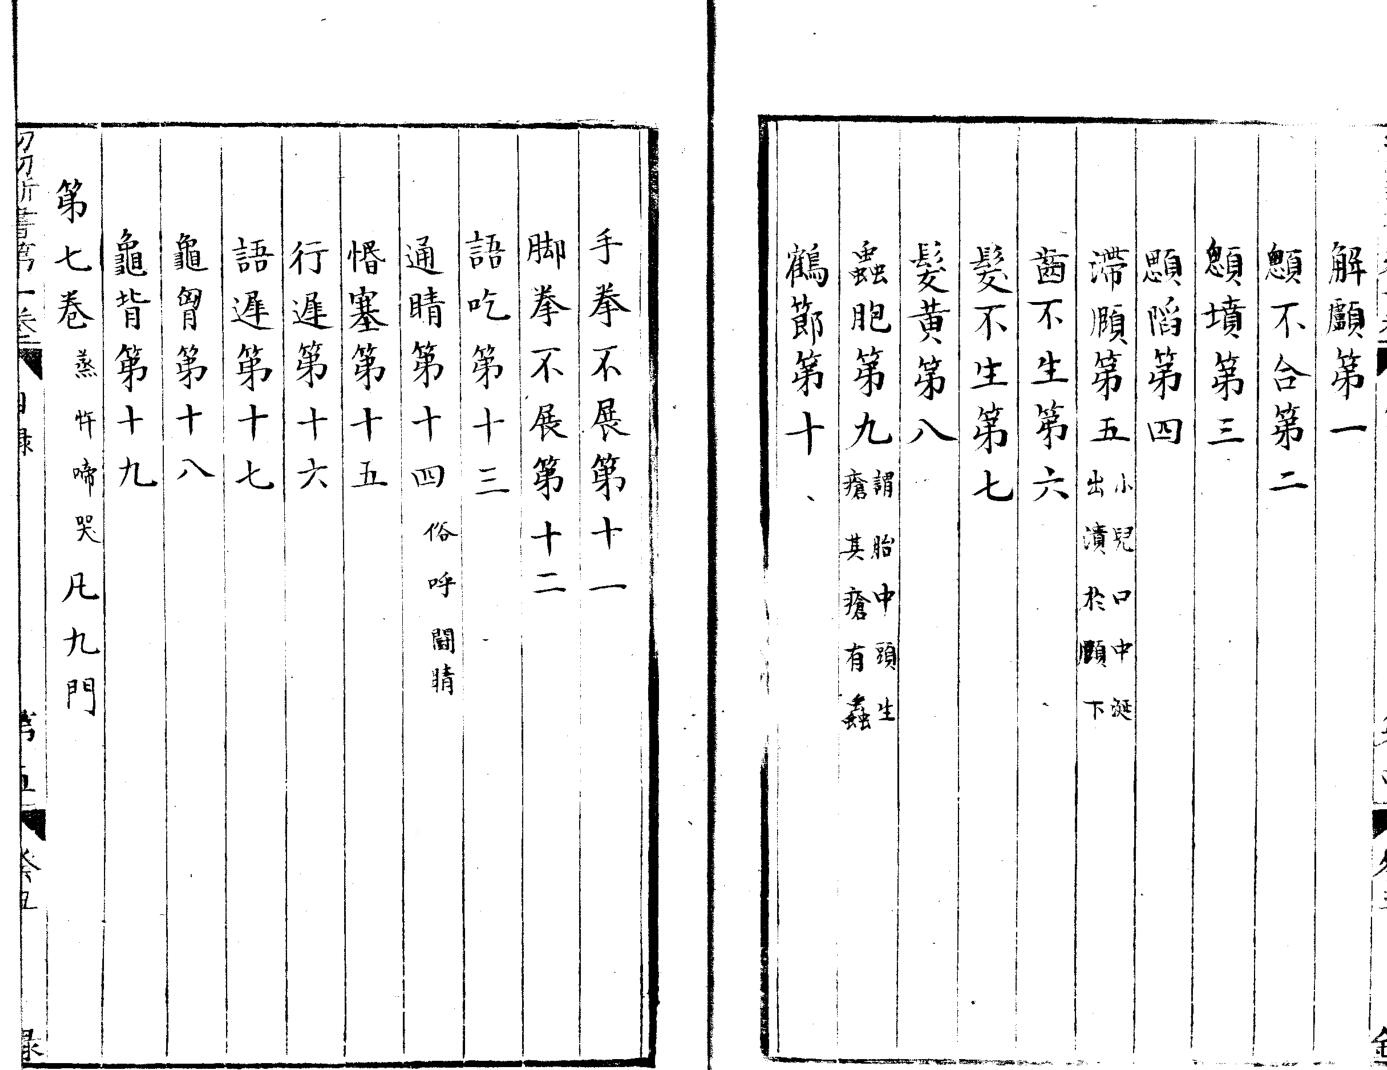 解顱第一
顖不合第二
顖墳第三
顖陷第四
滯頤第五 小兒口中涎出漬於頤下
齒不生第六
髮不生第七
髮黄第八
蟲胞第九 謂胎中頭生瘡其瘡有蟲
鶴節第十
手拳不展第十一
脚拳不展第十二
語吃第十三
通睛第十四 俗呼鬭睛
惛塞第十五
行遲第十六
語遲第十七
龜胷第十八
龜背第十九
第七卷 蒸忤啼哭 凡九門
幼幼新書第一卷 目録 第五 癸丑 録